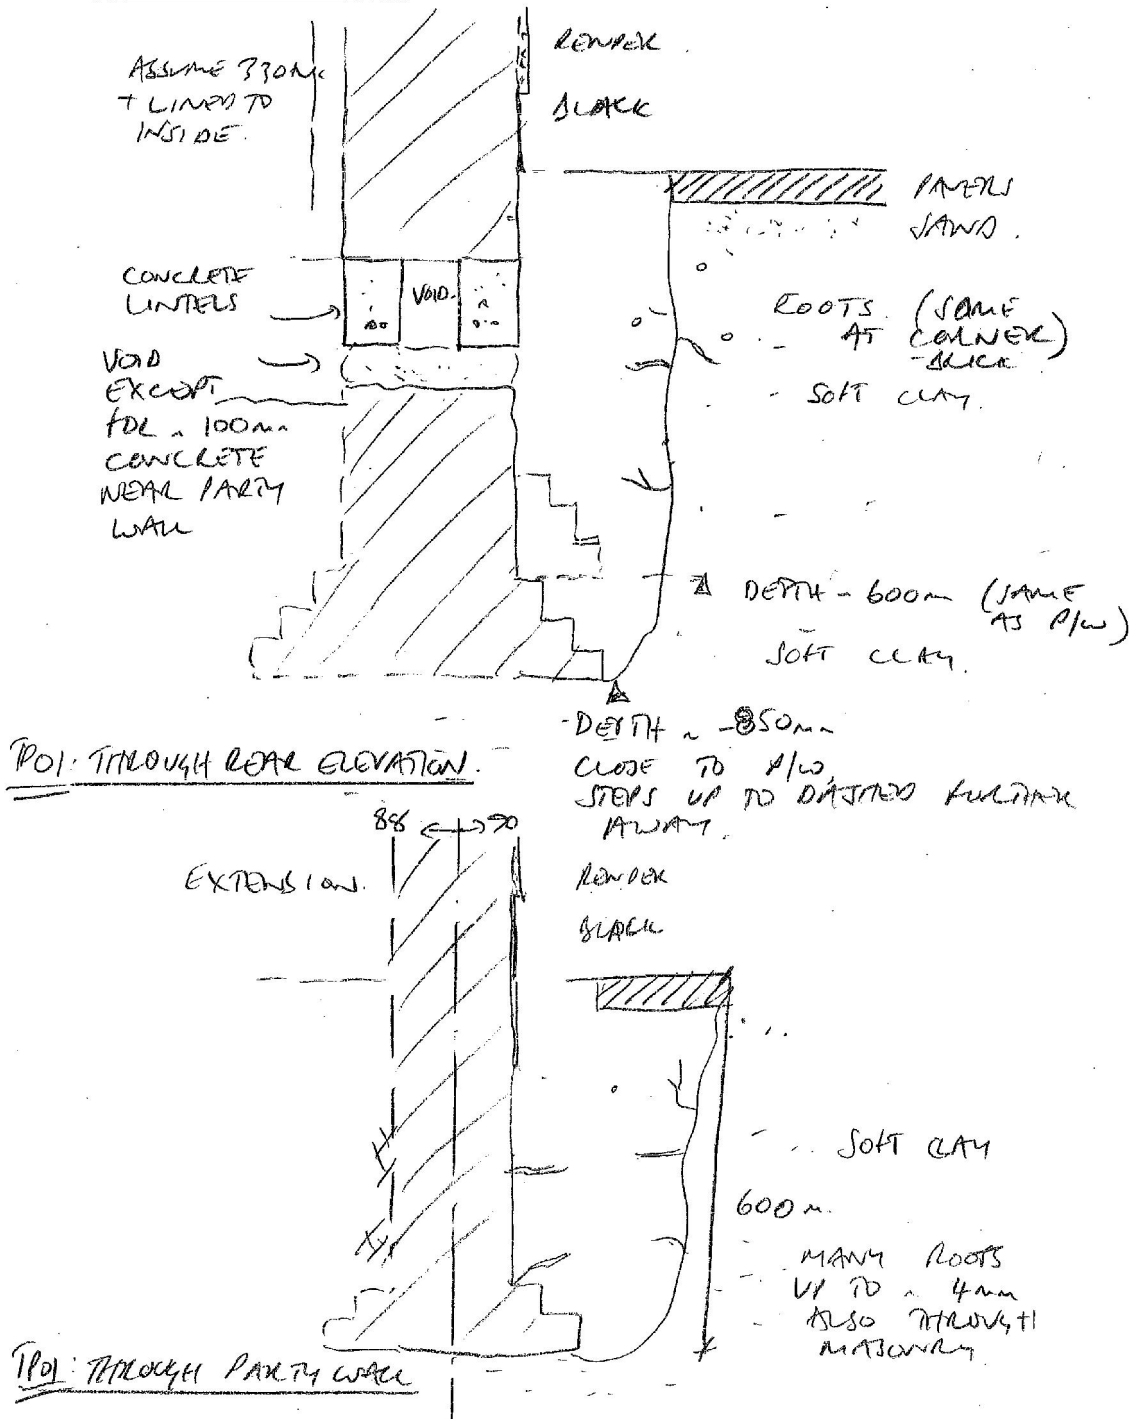 ASSUME 330mm
+ LINED TO
INSIDE.
RENDER
BLACK
PAVERS
SAND.
CONCRETE
LINTELS
VOID.
ROOTS. (SAME
AT CORNER)
SOFT CLAY.
VOID
EXCEPT
FOR ~ 100mm
CONCRETE
NEAR PARTY
WALL
DEPTH ~ 600mm (SAME
AS P/W)
SOFT CLAY.
DEPTH ~ -850mm
CLOSE TO P/W,
STEPS UP TO DASHED FURTHER
AWAY.
TP01: THROUGH REAR ELEVATION.
88 ↔ 90
EXTENSION.
RENDER
BLACK
SOFT CLAY
600m.
MANY ROOTS
UP TO ~ 4mm
ALSO THROUGH
MASONRY
TP01: THROUGH PARTY WALL